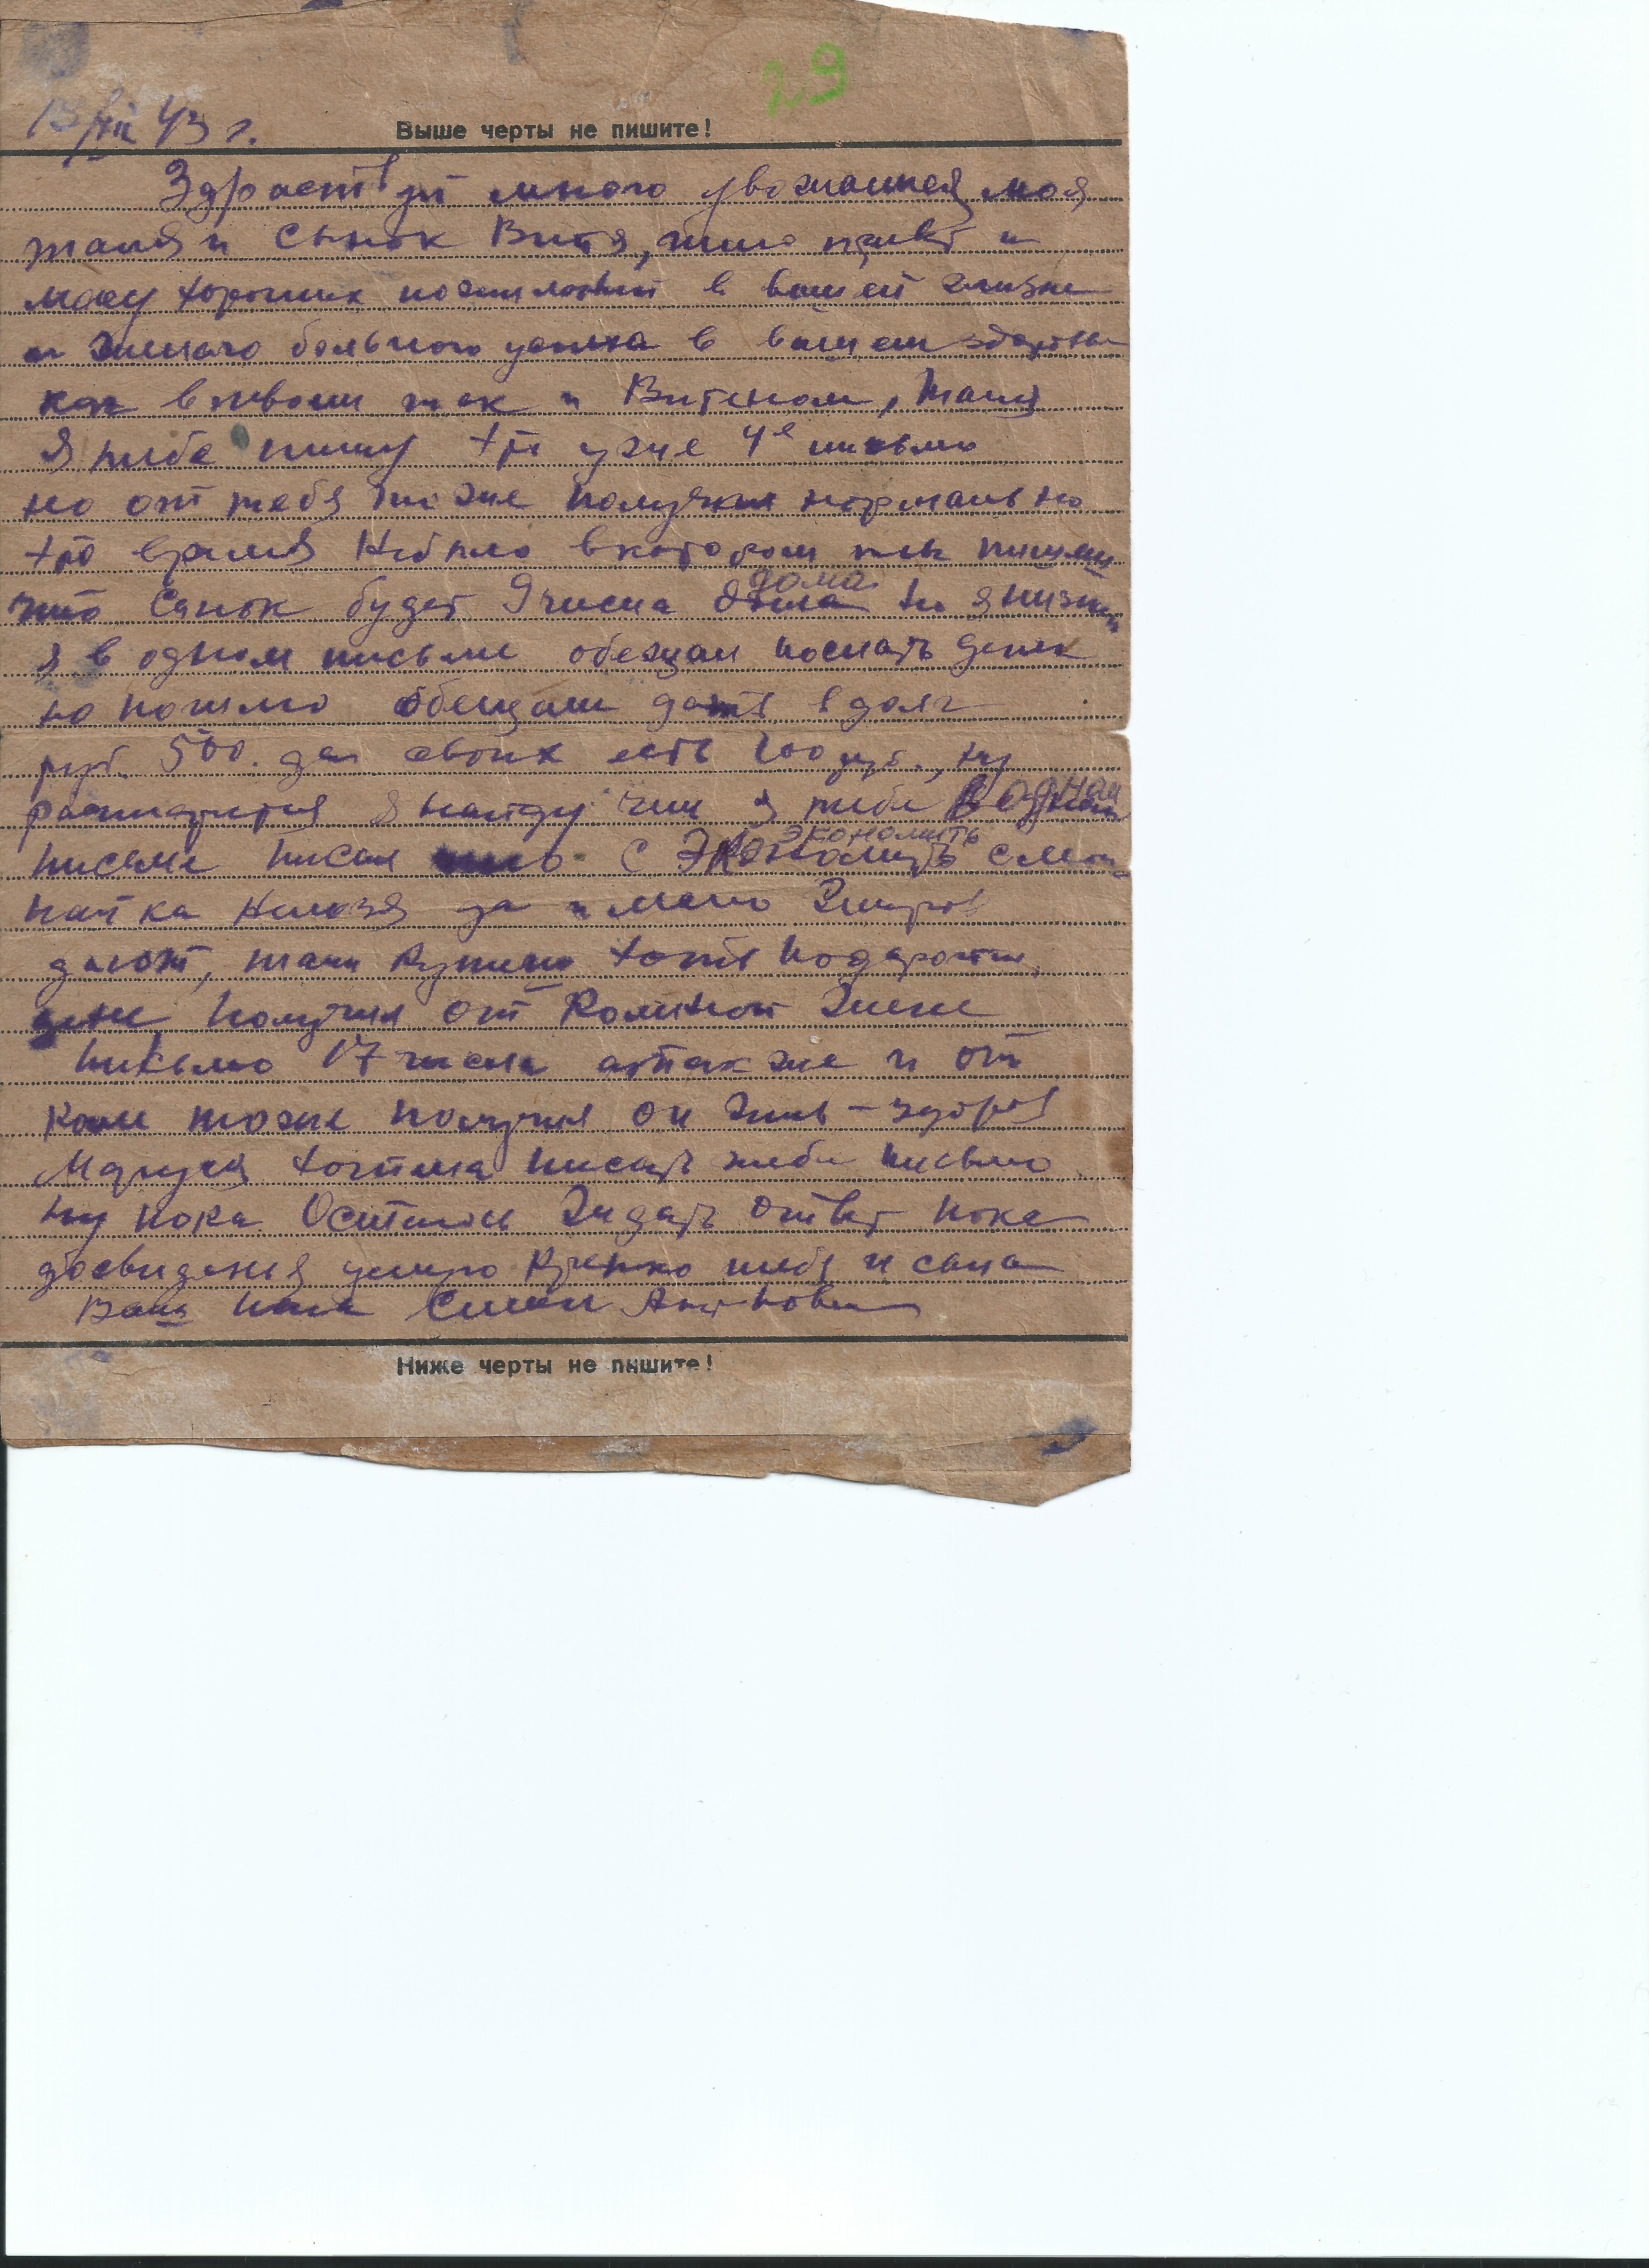 29
43 г.
Выше черты не пишите!
Здраств уй много уважаимая моя
таня и сынок Витя, шлю привет и
масу хороших пожиланий в вашей жизни
и жилаю большого успеха в вашем
как в твоем так и Витеном, таня
я тибе пишу уже 4е письмо
но от тебя тоже получил нормально
но время Небыло в котором ты пишеш
что Сынок будет 9 числа дома но я низнаю
я в одном письме обещал послать денек
но обещали дать в долг
руб. 500. да своих есть 200 руб., ну
я тибе в одном
письме писал что с экономить экономить с моей
пайка нельзя да и мало Жиров
дают, тани купить хотя подарочек
получил от Колиной Жене
письмо 17 числа а так же и от
Коли тоже получил он жив - здоров
Маруся хотела писать тибе письмо
ну пока Остаюсь Жидать ответ пока
досвиданья целую крепко тебя и сына
Ваш папа
Ниже черты не пишите!